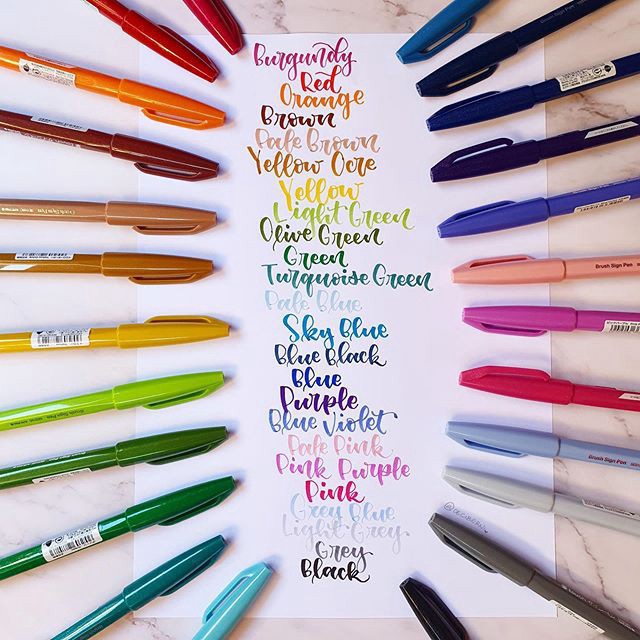 Burgundy
Red
Orange
Brown
Pale Brown
Yellow Ocre
Yellow
Light Green
Olive Green
Green
Turquoise Green
Pale Blue
Sky Blue
Blue Black
Blue
Purple
Blue Violet
Pale Pink
Pink Purple
Pink
Grey Blue
Light Grey
Grey
Black
Brush Sign Pen
Brush Sign Pen
Brush Sign Pen